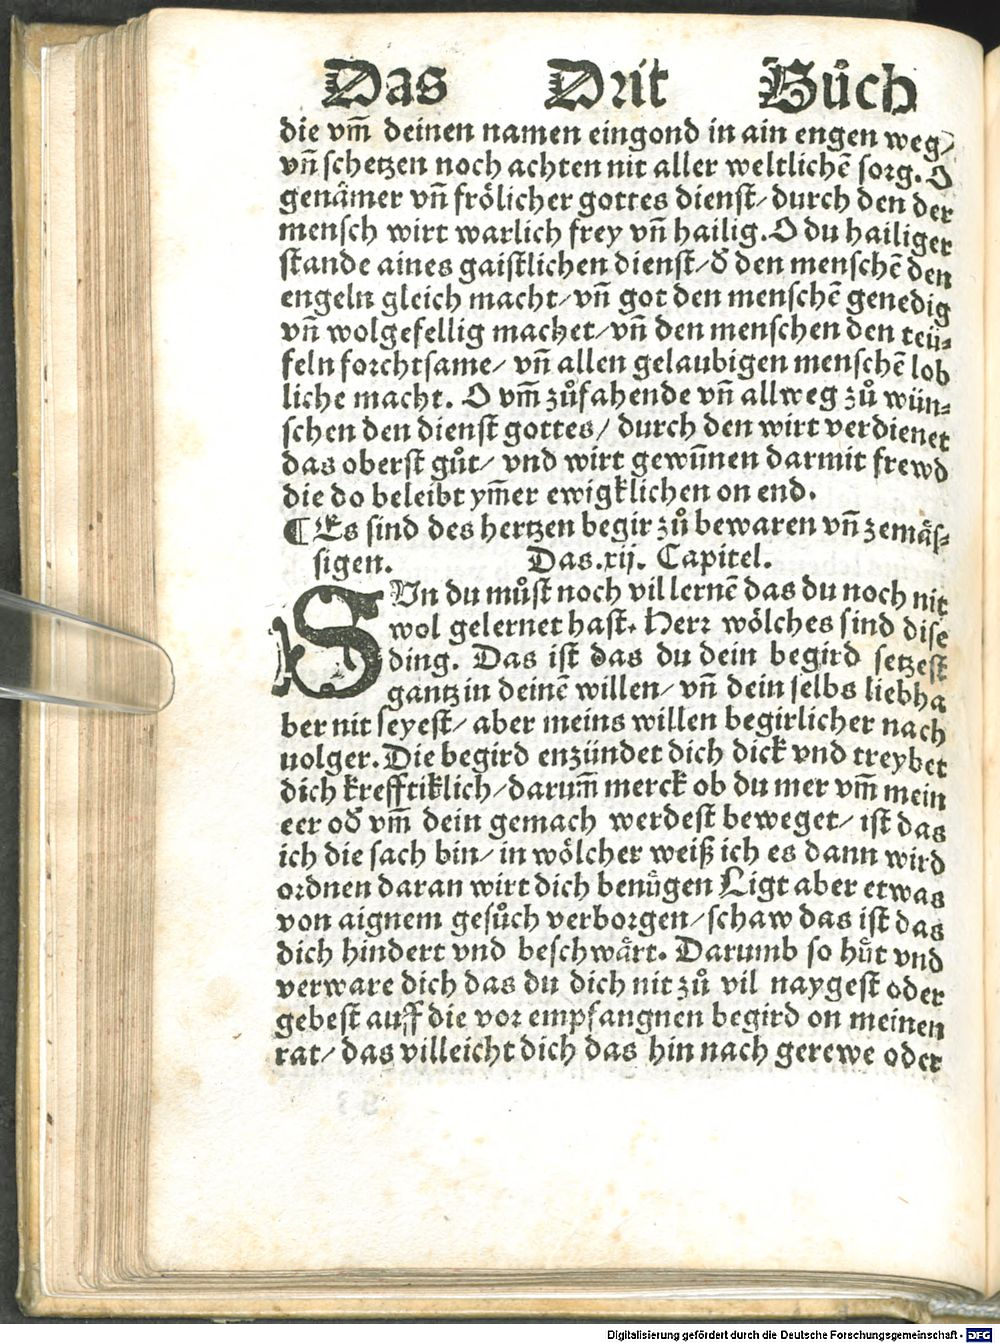 Das Drit Bůch
die vm̄ deinen namen eingond in ain engen weg/
vn̄ schetzen noch achten nit aller weltlichē sorg. O
genåmer vn̄ frölicher gottes dienst/ durch den der
mensch wirt warlich frey vn̄ hailig. O du hailiger
stande aines gaistlichen dienst/ d̕ den menschē den
engeln gleich macht/ vn̄ got den menschē genedig
vn̄ wolgefellig machet/ vn̄ den menschen den teü⸗
feln forchtsame/ vn̄ allen gelaubigen menschē lob
liche macht. O vm̄ zůfahende vn̄ allweg zů wün⸗
schen den dienst gottes/ durch den wirt verdienet
das oberst gůt/ vnd wirt gewūnen darmit frewd
die do beleibt ym̄er ewigklichen on end.
¶ Es sind des hertzen begir zů bewaren vn̄ zemäs⸗
sigen. Das .xij. Capitel.
SVn du můst noch vil lernē das du noch nit
wol gelernet hast. Herr wölches sind dise
ding. Das ist das du dein begird setzest
gantz in deinē willen/ vn̄ dein selbs liebha
ber nit seyest/ aber meins willen begirlicher nach
uolger. Die begird enzündet dich dick vnd treybet
dich krefftiklich/ darum̄ merck ob du mer vm̄ mein
eer od̕ vm̄ dein gemach werdest beweget/ ist das
ich die sach bin/ in wölcher weiß ich es dann wird
ordnen daran wirt dich benügen Ligt aber etwas
von aignem gesůch verborgen/ schaw das ist das
dich hindert vnd beschwårt. Darumb so hüt vnd
verware dich das du dich nit zů vil naygest oder
gebest auff die vor empfangnen begird on meinen
rat/ das villeicht dich das hin nach gerewe oder
Digitalisierung gefördert durch die Deutsche Forschungsgemeinschaft - DFG